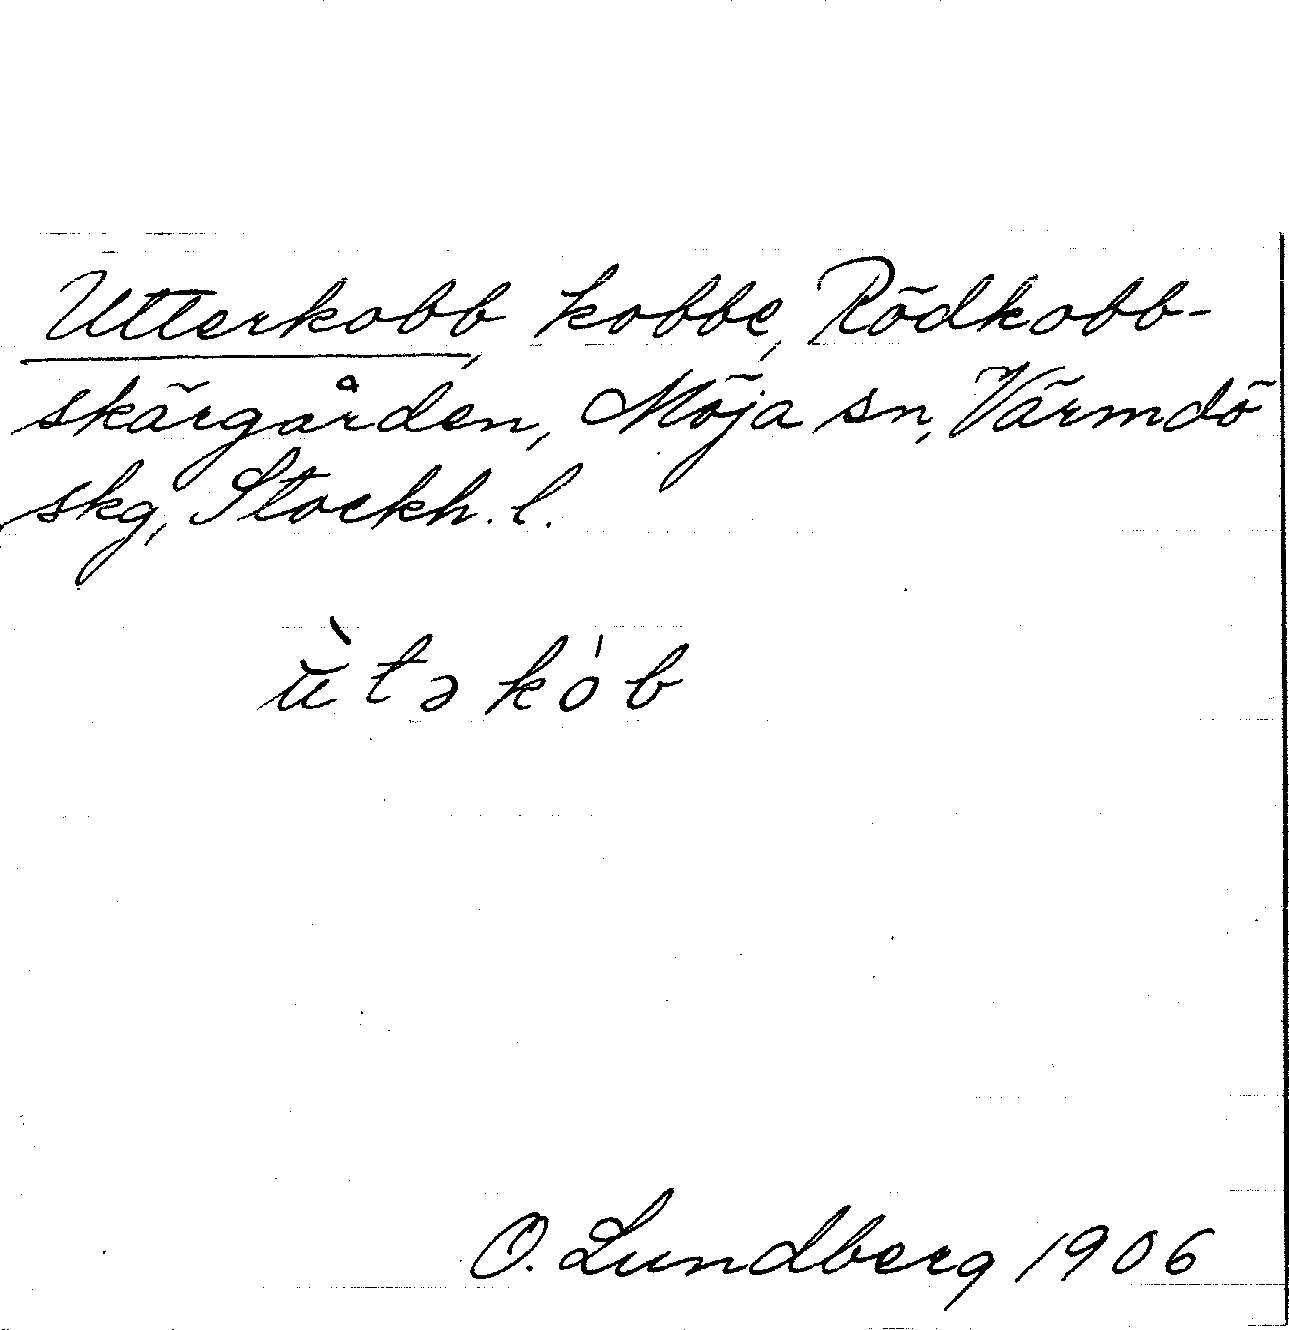 Utterkobb, kobbe, Rödkobb-
skärgården, Möja sn, Värmdö
skg, Stockh. l.
ùtəkób
O. Lundberg 1906